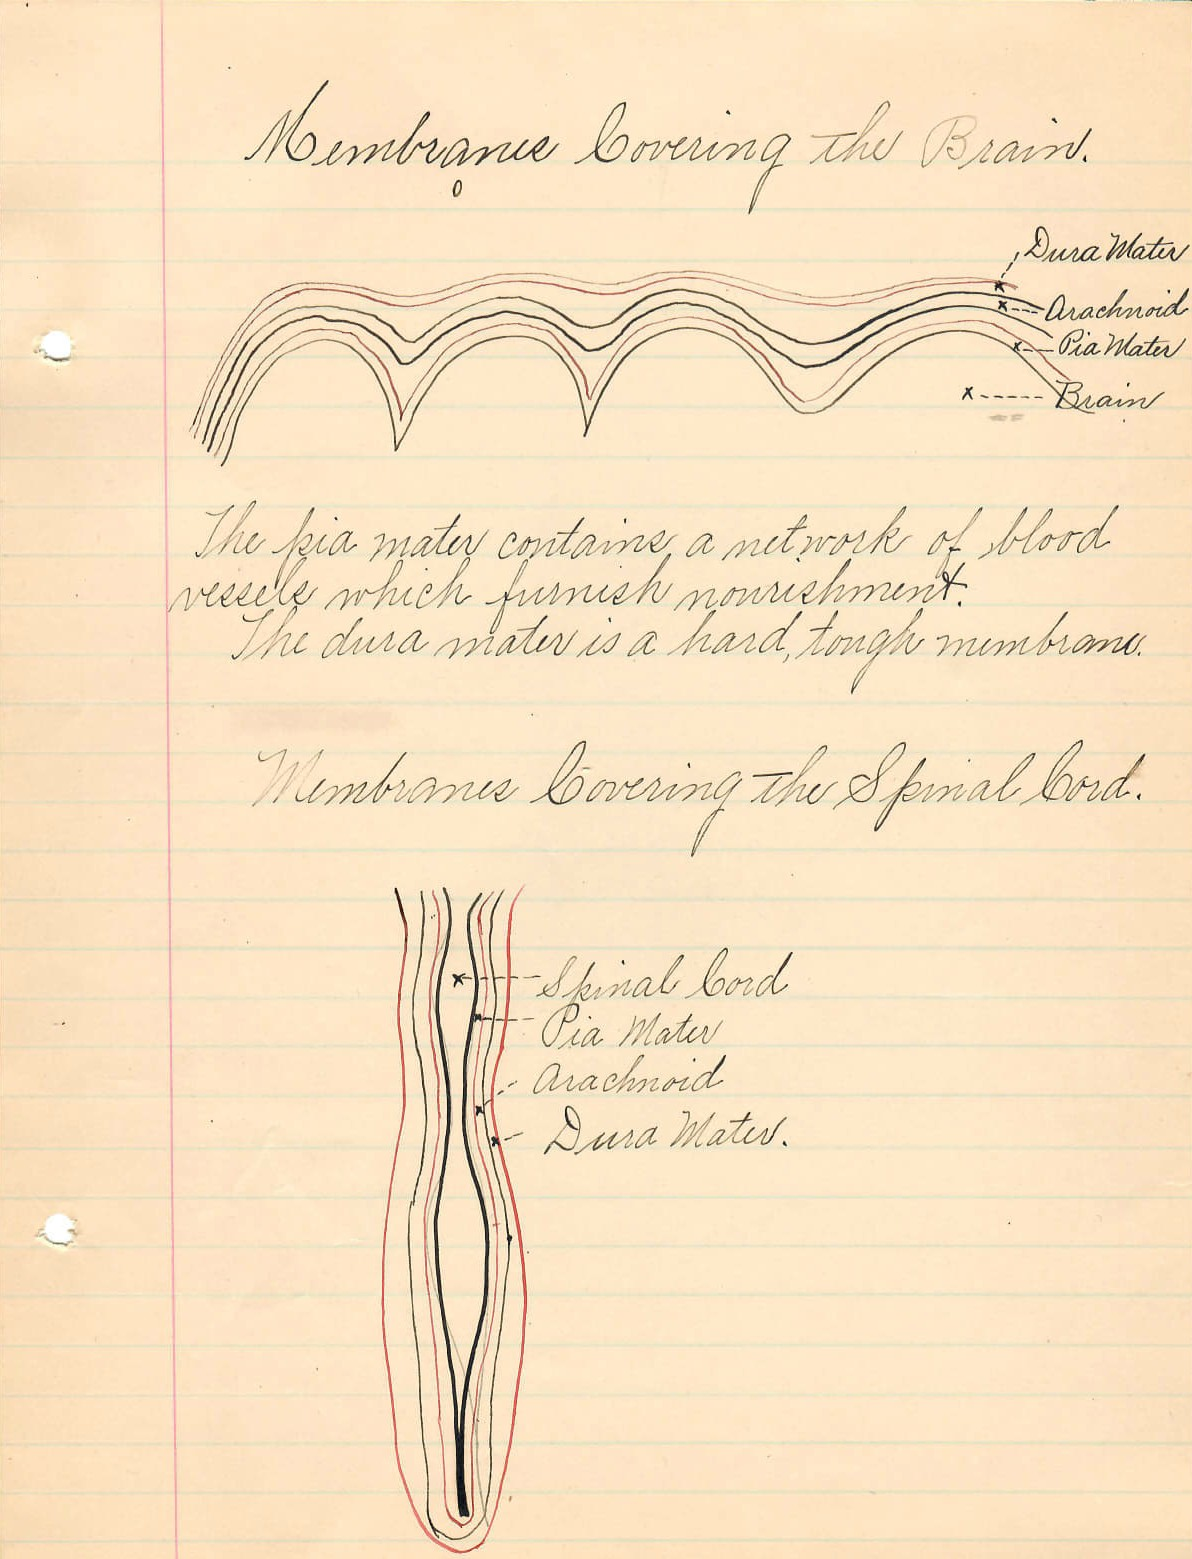 Membranes Covering the Brain.
Dura Mater
Arachnoid
Pia Mater
Brain
The pia mater contains a network of blood
vessels which furnish nourishment.
The dura mater is a hard, tough membrane.
Membranes Covering the Spinal Cord.
Spinal Cord
Pia Mater
Arachnoid
Dura Mater.